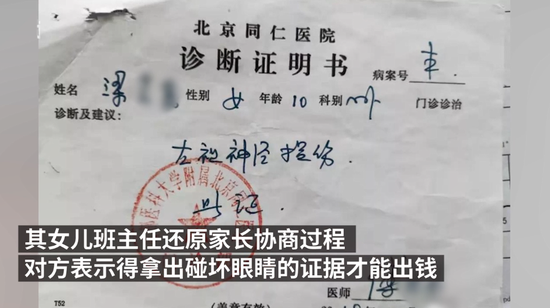 北京同仁医院
诊断证明书
病案号 丰
姓名 梁 性别 女 年龄 10 科别 眼 门诊诊治
诊断及建议:
左视神经损伤.
此证
医科大学附属北京同
其女儿班主任还原家长协商过程
对方表示得拿出碰坏眼睛的证据才能出钱
医师
T52
(盖章有效)